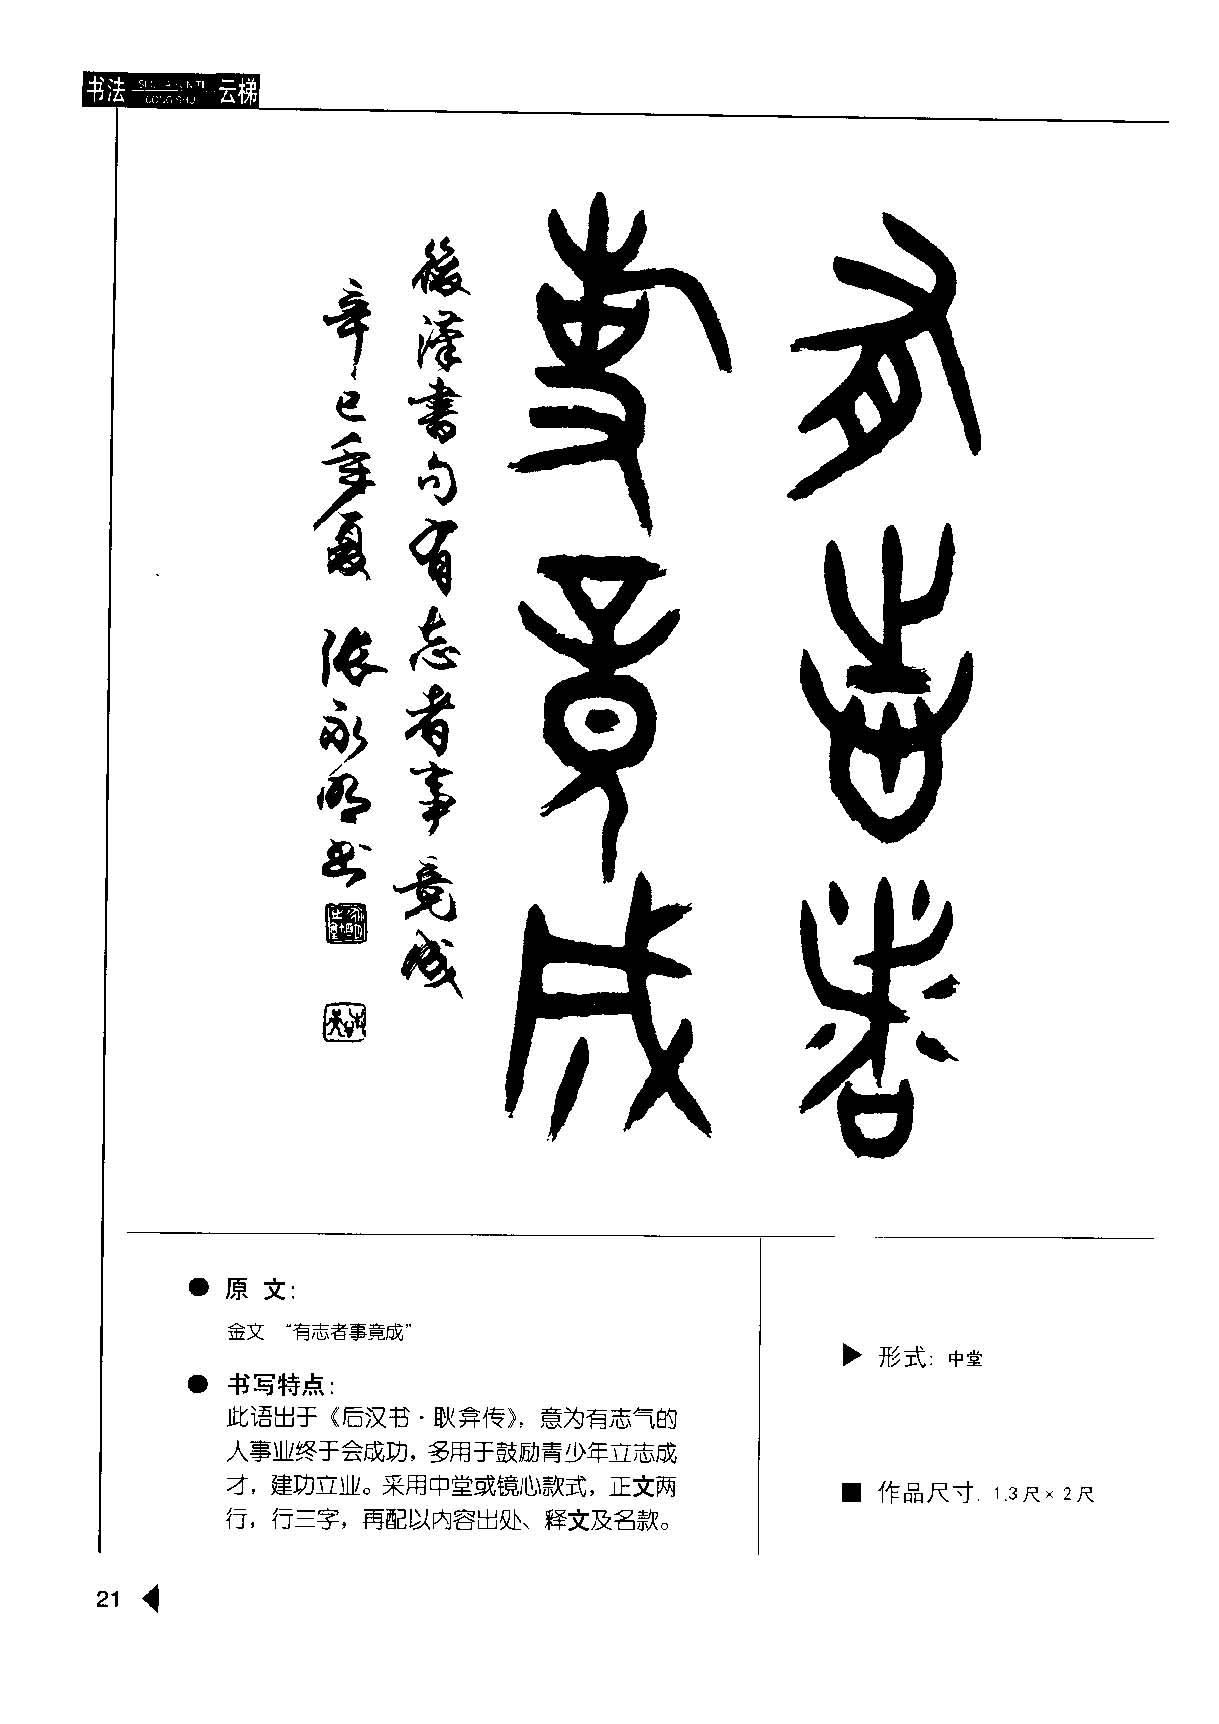 书法
云梯
有志者
事竟成
後漢書句有志者事竟成
辛巳年夏 张永明书
● 原 文：
金文 “有志者事竟成”
● 书写特点：
此语出于《后汉书·耿弇传》，意为有志气的
人事业终于会成功，多用于鼓励青少年立志成
才，建功立业。采用中堂或镜心款式，正文两
行，行三字，再配以内容出处、释文及名款。
▶ 形式：中堂
■ 作品尺寸. 1.3尺×2尺
21 ◀